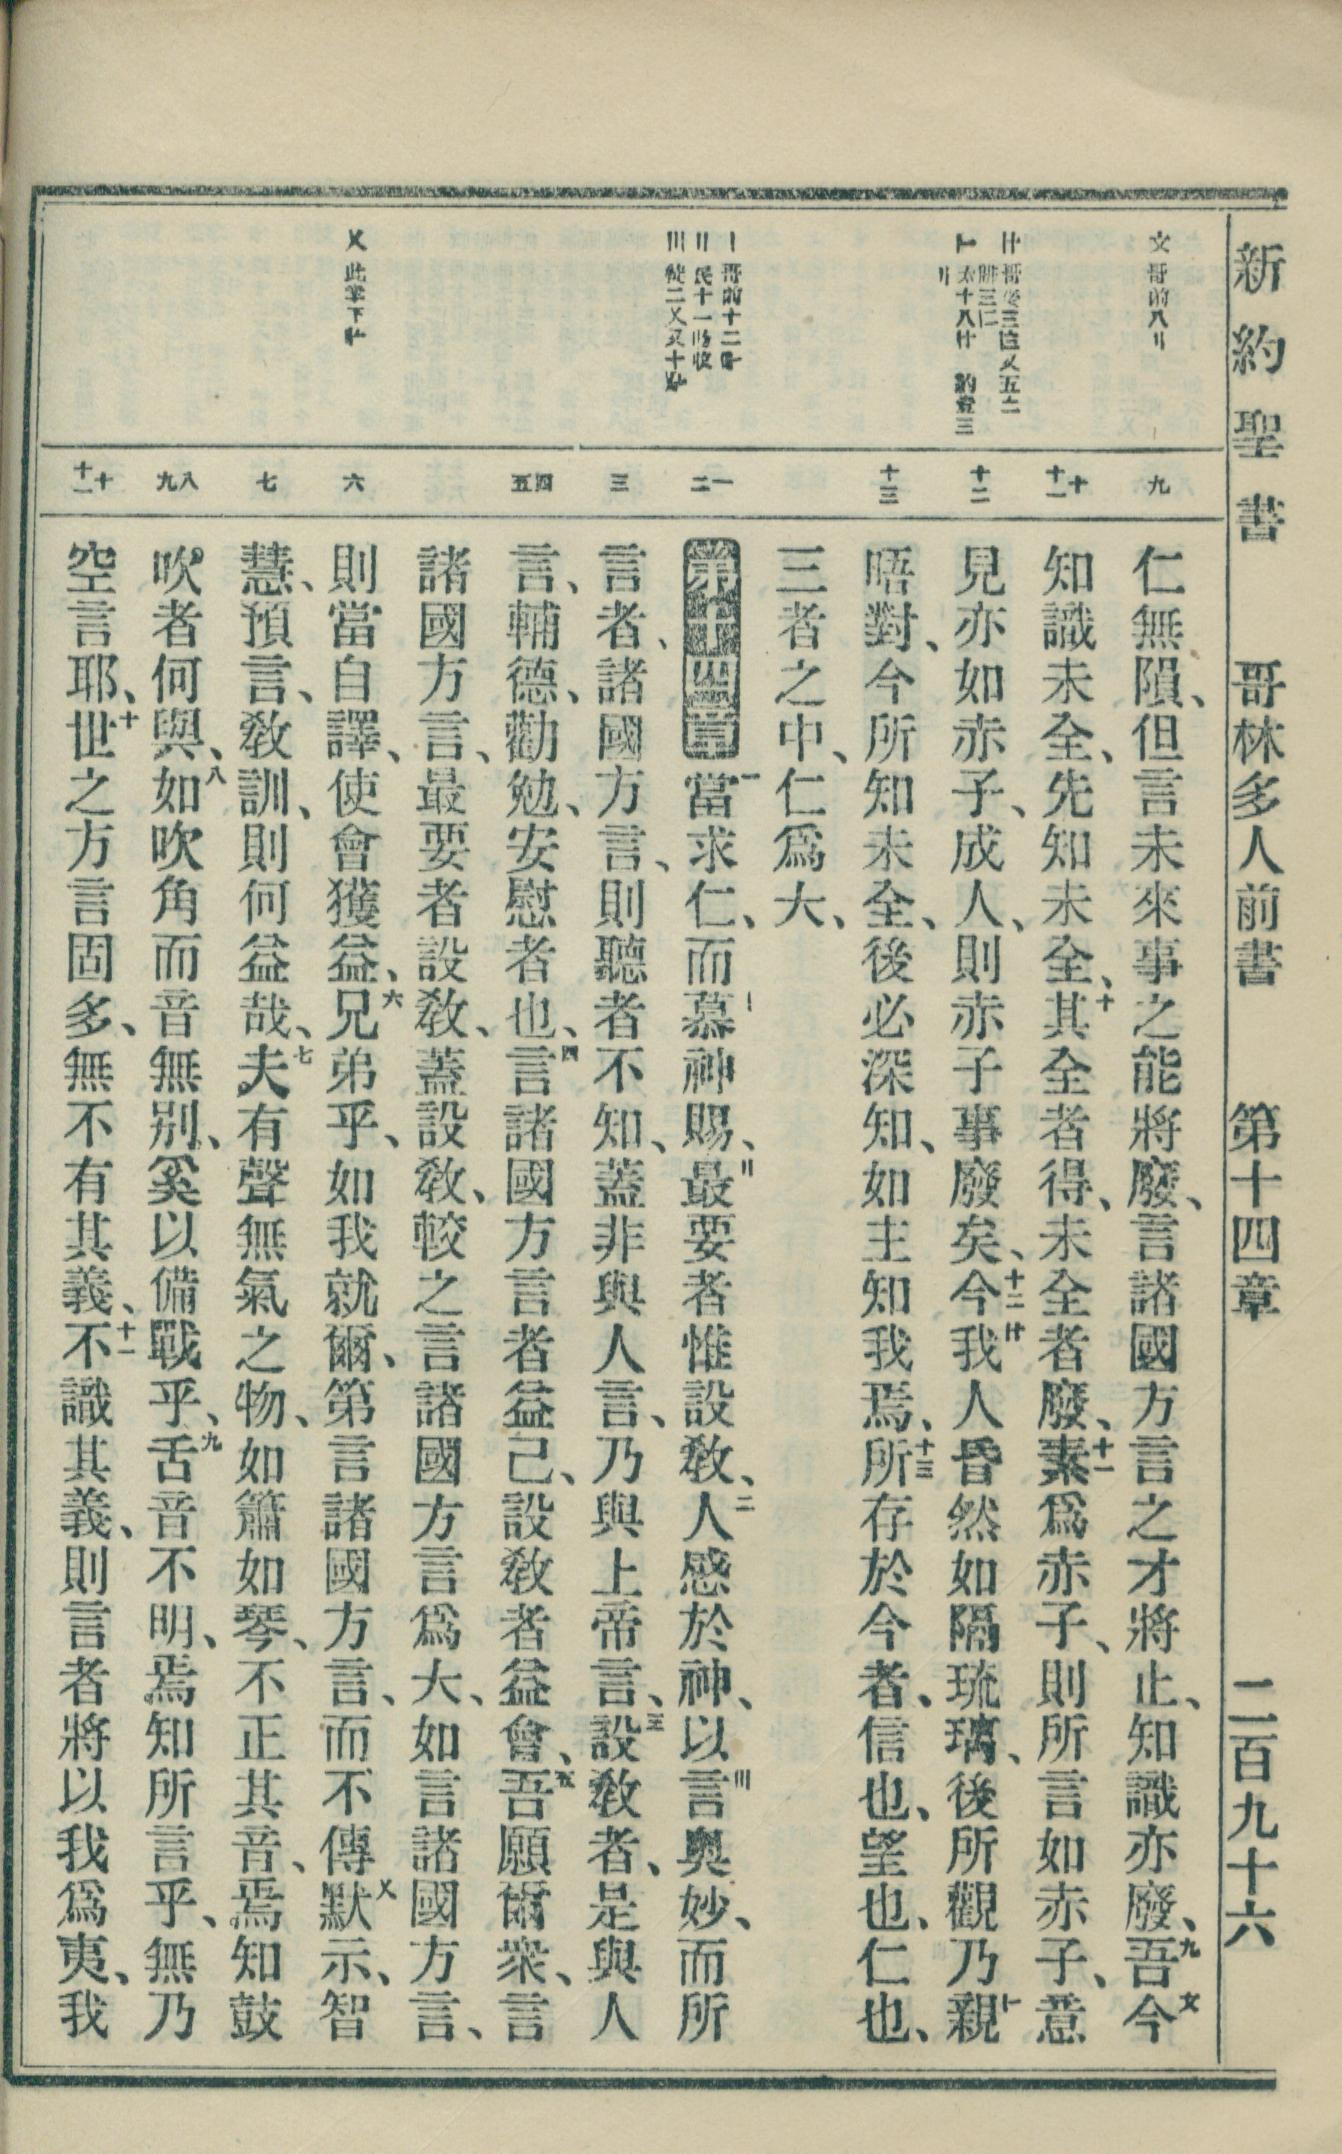 新約聖書 哥林多人前書 第十四章 二百九十六
仁無隕、但言未來事之能將廢、言諸國方言之才將止、知識亦廢、九吾文今
知識未全、先知未全、十其全者得、未全者廢、十一素爲赤子、則所言如赤子、意
見亦如赤子、成人、則赤子事廢矣、十二今我人昏然如隔琉璃、後所觀乃親
晤對、今所知未全、後必深知、如主知我焉、十三所存於今者、信也、望也、仁也、
三者之中、仁爲大、
第十四章 一當求仁、而慕神賜、最要者惟設敎、二人感於神、以言奧妙、而所
言者、諸國方言、則聽者不知、蓋非與人言、乃與上帝言、三設敎者、是與人
言、輔德、勸勉、安慰者也、四言諸國方言者益己、設敎者益會、五吾願爾衆、言
諸國方言、最要者設敎、蓋設敎、較之言諸國方言爲大、如言諸國方言、
則當自譯、使會獲益、六兄弟乎、如我就爾、第言諸國方言、而不傳默示、智
慧、預言、敎訓、則何益哉、七夫有聲無氣之物、如簫如琴、不正其音、焉知鼓
吹者何與、八如吹角而音無别、奚以備戰乎、九舌音不明、焉知所言乎、無乃
空言耶、十世之方言固多、無不有其義、十一不識其義、則言者將以我爲夷、我
九
十
十一
十二
十三
一
二
三
四
五
六
七
八
九
十
十一